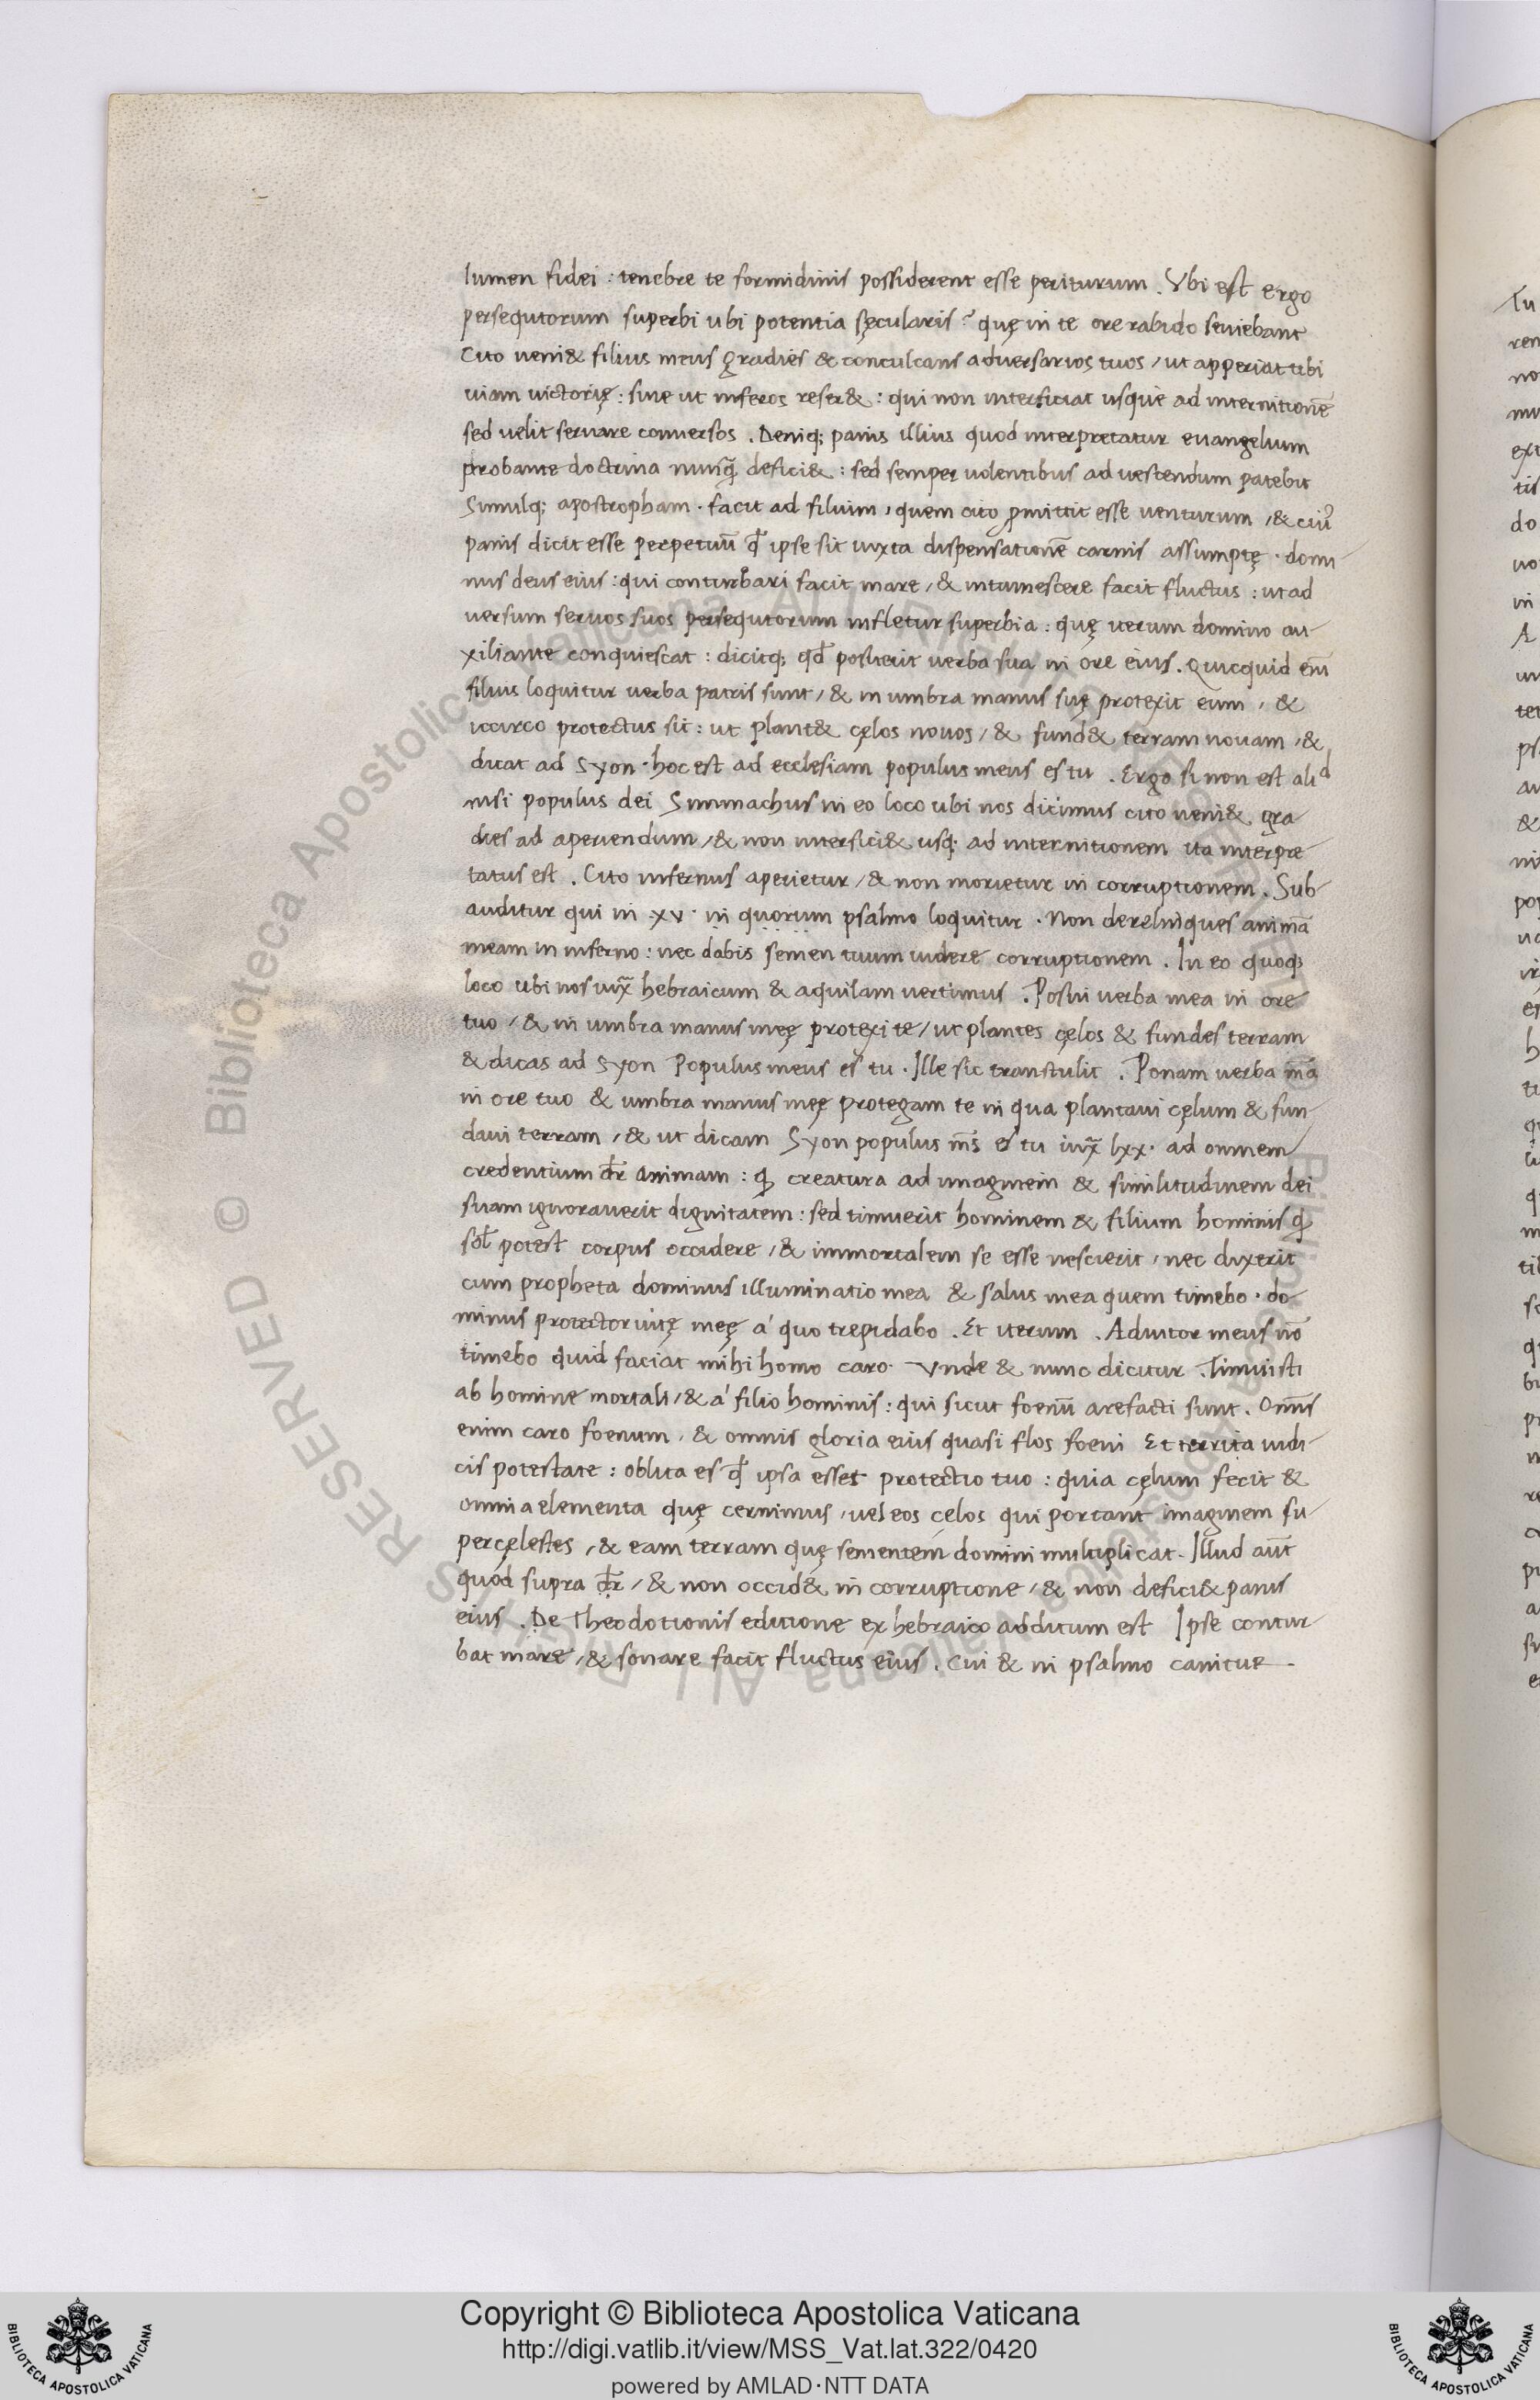 lumen fidei : tenebre te formidinis possiderent esse periturum . Vbi est ergo
persequtorum superbi ubi potentia sęcularis ? quę in te ore rabido seuiebant
Cito ueni& filius meus gradiẽs & conculcans aduersarios tuos / ut apperiat tibi
uiam uictorię : siue ut inferos reser& : qui non interficiat usque ad internitionẽ
sed uelit seruare conuersos . Deniq; panis illius quod interpretatur euangelium
probante doctrina nunq̃ defici& : sed semper uolentibus ad uescendum patebit
Simulq; apostropham . facit ad filium , quem cito ꝓmittit esse uenturum , & cui᷒
panis dicit esse perpetuũ qđ ipse sit iuxta dispensationẽ carnis assumptę . domi
nus deus eius : qui conturbari facit mare , & intumescere facit fluctus : ut ad
uersum seruos suos persequtorum infletur superbia : quę uerum domino au
xiliante conquiescat : dicitq; qđ posuerit uerba sua in ore eius . Quicquid eñ
filius loquitur uerba patris sunt , & in umbra manus suę protexit eum , &
iccirco protectus sit : ut plant& cęlos nouos , & fund& terram nouam , &
dicat ad Syon . hoc est ad ecclesiam populus meus es tu . Ergo si non est alid
nisi populus dei Simmachus in eo loco ubi nos dicimus cito ueni& gra
dies ad aperiendum , & non interfici& usq; ad internitionem ita interpre
tatus est . Cito infernus aperietur , & non morietur in corruptionem . Sub
auditur qui in .xv. in quorum psalmo loquitur . Non derelinques animã
meam in inferno : nec dabis semen tuum uidere corruptionem . In eo quoq;
loco ubi nos iux̃ hebraicum & aquilam uertimus . Posui uerba mea in ore
tuo , & in umbra manus meę protexi te , ut plantes cęlos & fundes terram
& dicas ad Syon Populus meus es tu . Ille sic transtulit . Ponam uerba m̃a
in ore tuo & umbra manus meę protegam te in qua plantaui cęlum & fun
daui terram , & ut dicam Syon populus m̃s es tu iux̃ lxx . ad omnem
credentium dr̃ animam : q̵ creatura ad imaginem & similitudinem dei
suam ignorauerit dignitatem : sed timuerit hominem & filium hominis q̵
sol̃ potest corpus occidere , & immortalem se esse nescierit , nec dixerit
cum propheta dominus illuminatio mea & salus mea quem timebo . do
minus protector uitę meę a' quo trepidabo . Et iterum . Adiutor meus nõ
timebo quid faciat mihi homo caro . Vnde & nunc dicitur . Timuisti
ab homine mortali , & a' filio hominis : qui sicut foenũ arefacti sunt . Om̃s
enim caro foenum , & omnis gloria eius quasi flos foeni Et territa iudi
cis potestate : oblita es qđ ipsa esset protectio tuo : quia cęlum fecit &
omnia elementa quę cernimus , uel eos cęlos qui portant imaginem su
percęlestes , & eam terram quę sementem domini multiplicat . Illud aũt
quod supra dr̃ , & non occid& in corruptione , & non defici& panis
eius . De Theodotionis editione ex hebraico additum est Ipse contur
bat mare , & sonare facit fluctus eius . Cui & in psalmo canitur .
Copyright © Biblioteca Apostolica Vaticana
http://digi.vatlib.it/view/MSS_Vat.lat.322/0420
powered by AMLAD·NTT DATA